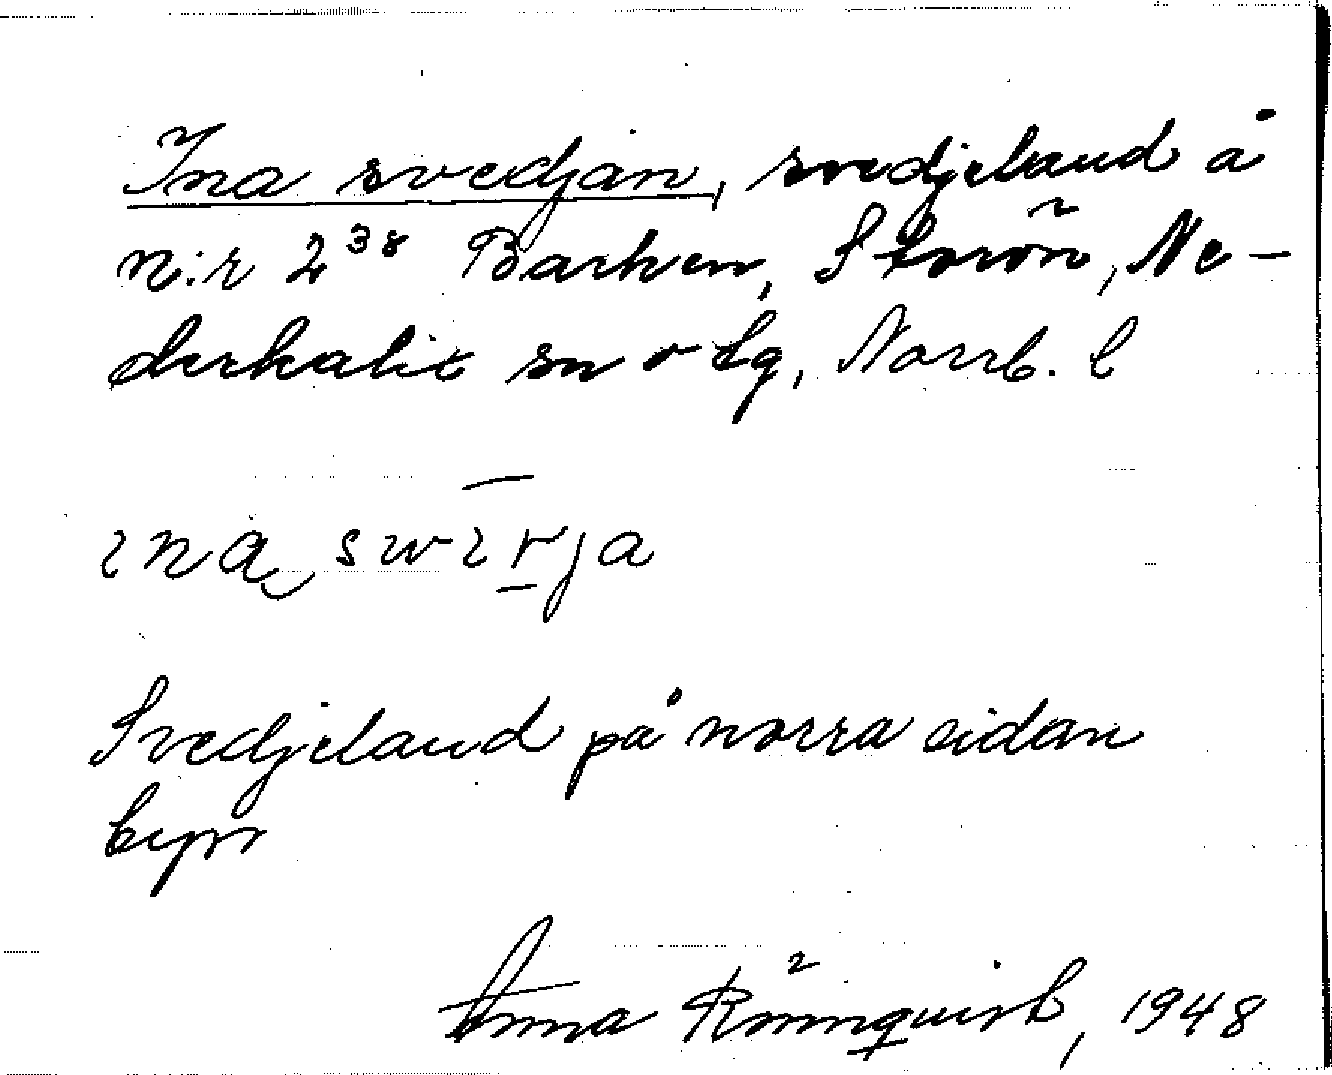 Ina svedjan, svedjeland å
n:r 2³⁸ Barken, Storön, Ne-
derkalix sn o tg, Norrb. l
Svedjeland på norra sidan
byn
Anna Rönnquist, 1948